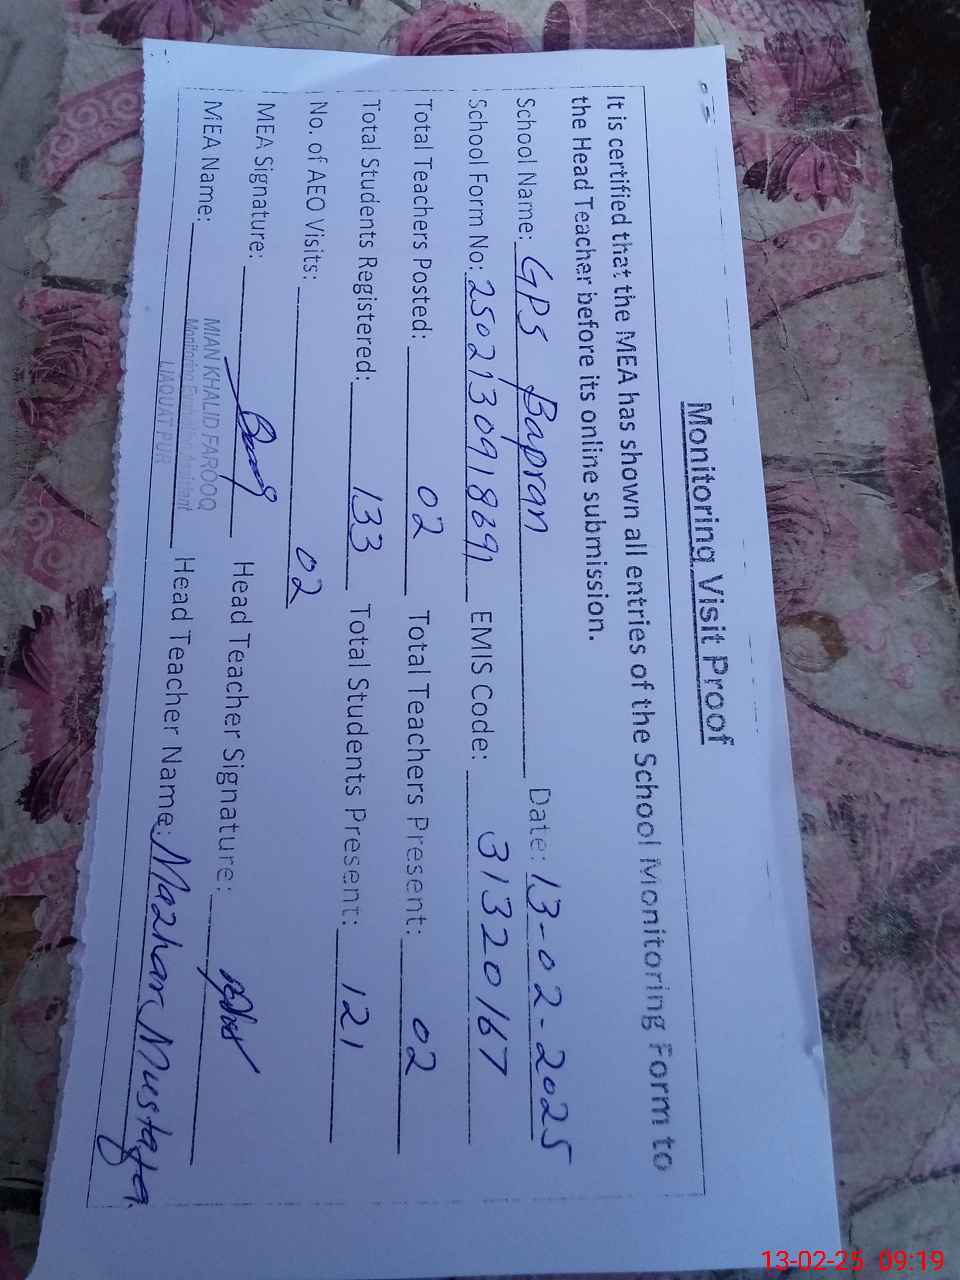 Monitoring Visit Proof
It is certified that the MEA has shown all entries of the School Monitoring Form to
the Head Teacher before its online submission.
School Name: GPS Bapran Date: 13-02-2025
School Form No: 2502130918691 EMIS Code: 31320167
Total Teachers Posted: 02 Total Teachers Present: 02
Total Students Registered: 133 Total Students Present: 121
No. of AEO Visits: 02
MEA Signature: Head Teacher Signature:
MEA Name: MIAN KHALID FAROOQ Head Teacher Name: Mazhar Mustafa
Monitoring Evaluation Assistant
LIAQUATPUR
13-02-25 09:19